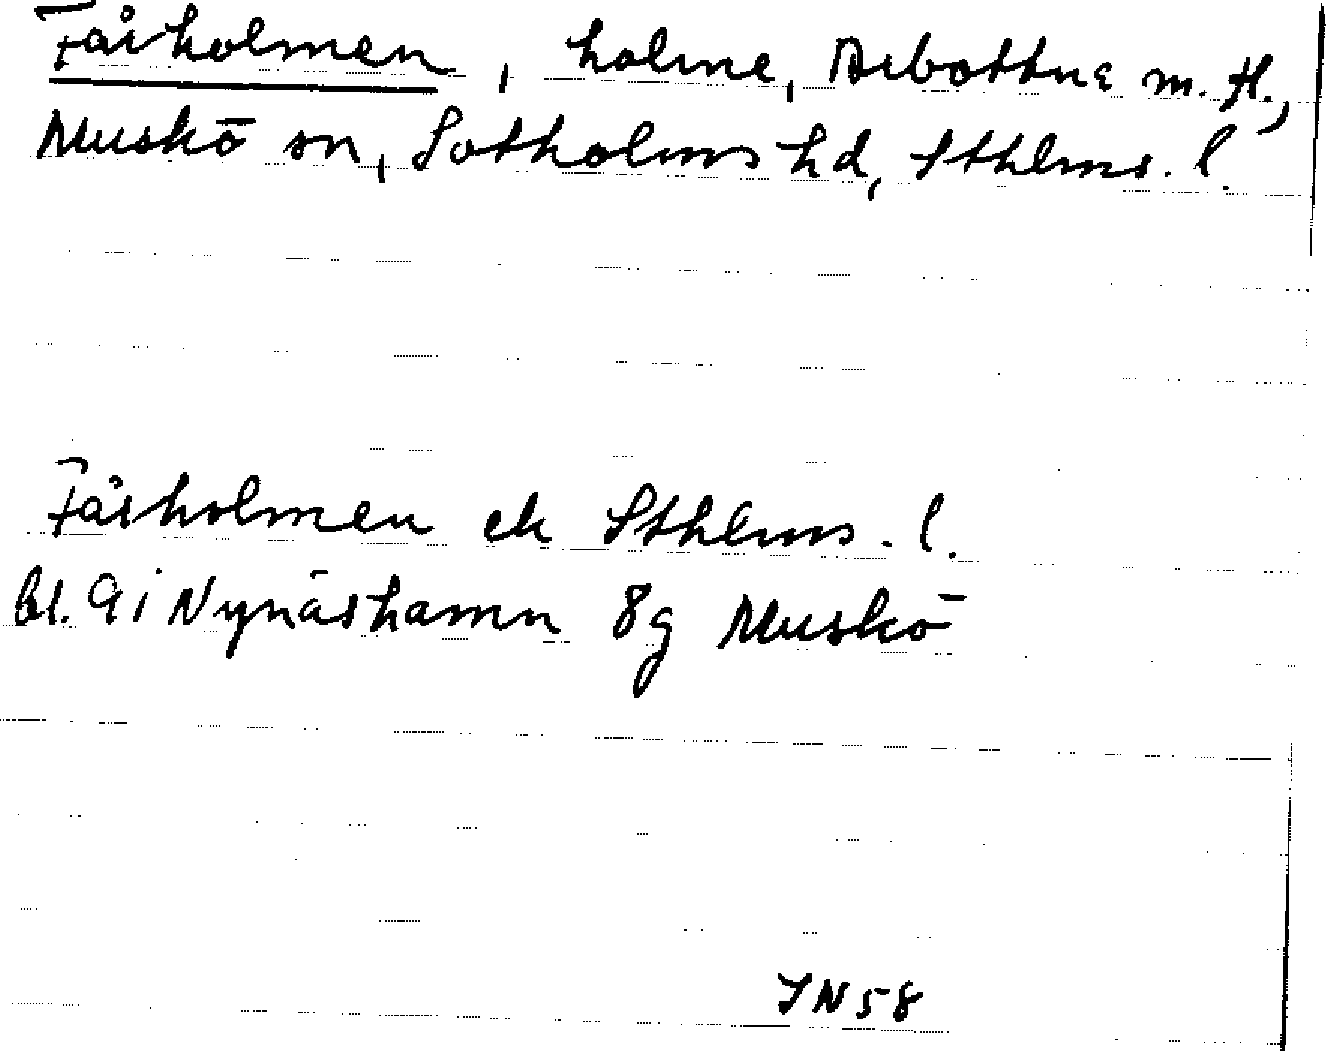 Fårholmen, holme, Arbottna m. fl.,
Muskö sn, Sotholms hd, Sthlms. l.
Fårholmen ek Sthlms. l.
bl. 9i Nynäshamn 8g Muskö
SN58